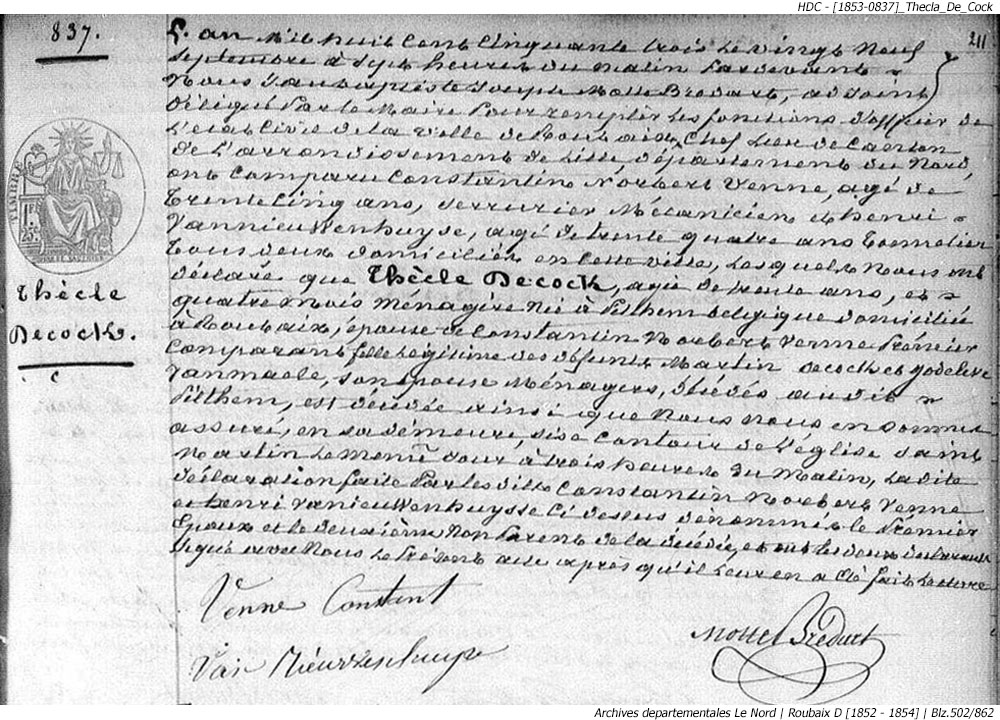 HDC - [1853-0837]_Thecla_De_Cock
837.
211
L'an mil huit cent cinquante trois le vingt neuf
septembre à sept heures du matin Pardevant
Nous Jean baptiste Joseph Motte Bredart, adjoint
délégué Par le Maire Pour remplir les fonctions d'officier de
L'état Civil de la ville de Roubaix, Chef Lieu de Canton
de L'arrondissement de Lille département du Nord,
ont Comparu Constantin Norbert Venne, agé de
trente Cinq ans, serrurier Mécanicien et henri
Vannieuwenhuyse, agé de trente quatre ans
tous deux domiciliés en cette ville, Lesquels Nous ont
déclaré que Thècle Decock, agée de trente ans, et
quatre mois Ménagère Née à Pitthem belgique domiciliée
à Roubaix, épouse de Constantin Norbert Venne Prémier
Comparant fille Légitime des défunts Martin decock et godelieve
Vanmaele, son épouse Ménagers, décédés audit
Pitthem, est décédée ainsi que Nous Nous en sommes
assuré, en sa demeure, sise Contour de L'église saint
Martin Le même Jour à trois heures du Matin, La dite
déclaration faite Par les dits Constantin Norbert Venne
et henri Vannieuwenhuysse Ci dessus dénommés le Premier
Epoux et le deuxième Non Parent de la décédée, et ont les deux déclarants
signé avec Nous Le Présent acte après qu'il Leur en a été fait Lecture
Thècle
Decock.
Venne Constant
Motte Bredart
Van Nieuwenhuyse
Archives departementales Le Nord | Roubaix D [1852 - 1854] | Blz.502/862